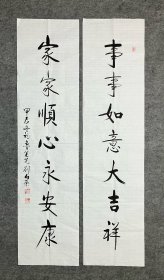 事事如意大吉祥
家家順心永安康